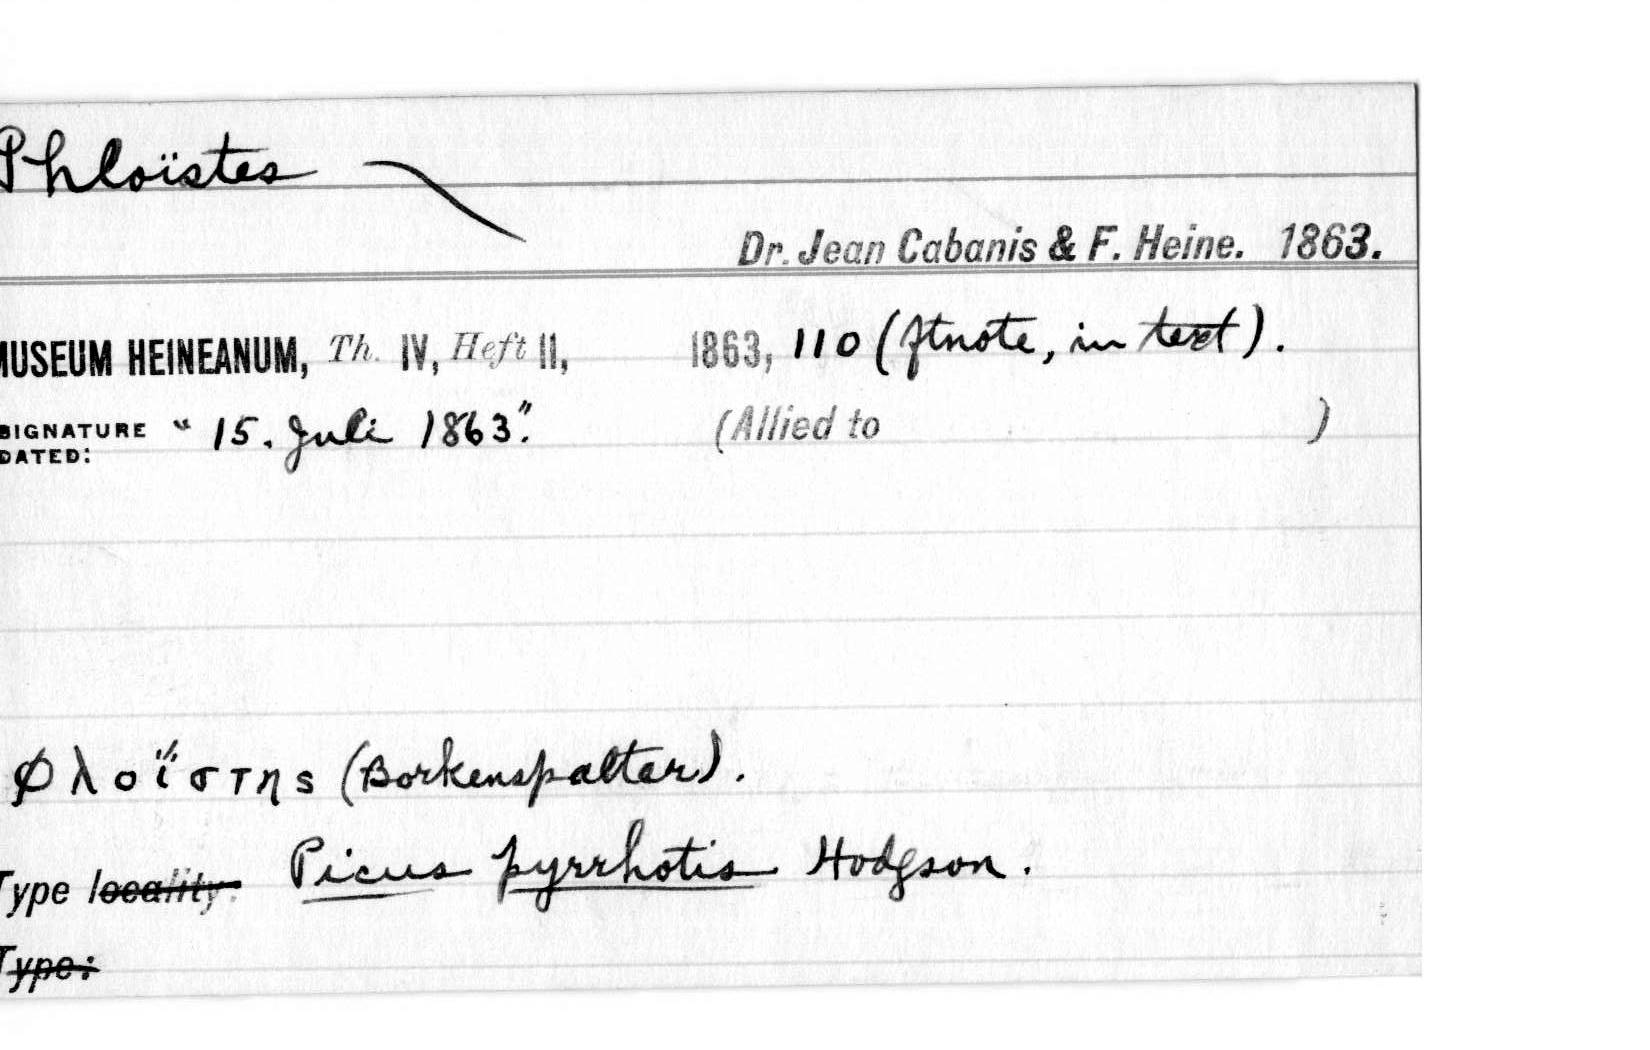 Phloïstes
Dr. Jean Cabanis & F. Heine. 1863.
MUSEUM HEINEANUM, Th. IV, Heft II, 1863, 110 (ftnote, in text).
SIGNATURE DATED: "15. Juli 1863". (Allied to )
Φλοΐστης (Borkenspalter).
Type locality. Picus pyrrhotis Hodgson.
Type: